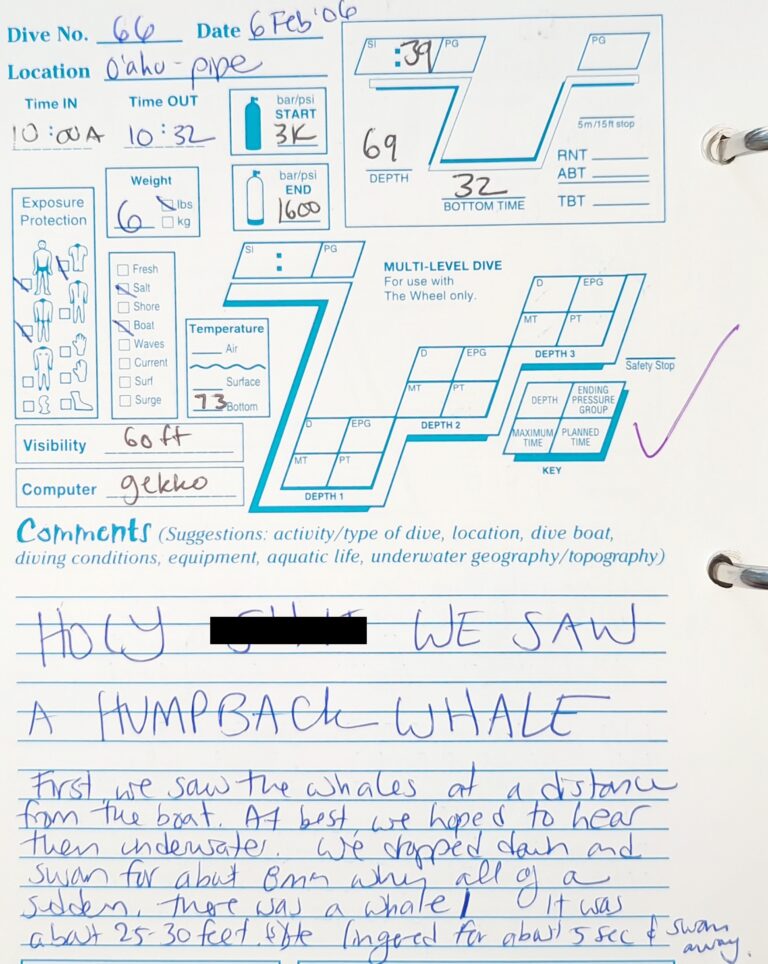 Dive No. 66 Date 6 Feb '06
Location O'ahu - pipe
Time IN Time OUT
10:00A 10:32
bar/psi
START
3K
bar/psi
END
1600
SI :39 PG
PG
69
DEPTH
32
BOTTOM TIME
5m/15ft stop
RNT
ABT
TBT
Exposure
Protection
Weight
6 lbs
kg
Fresh
Salt
Shore
Boat
Waves
Current
Surf
Surge
Temperature
Air
Surface
73 Bottom
Visibility 60 ft
Computer gekko
SI : PG
MULTI-LEVEL DIVE
For use with
The Wheel only.
D EPG
MT PT
DEPTH 1
D EPG
MT PT
DEPTH 2
D EPG
MT PT
DEPTH 3
Safety Stop
DEPTH ENDING PRESSURE GROUP
MAXIMUM TIME PLANNED TIME
KEY
Comments (Suggestions: activity/type of dive, location, dive boat,
diving conditions, equipment, aquatic life, underwater geography/topography)
HOLY WE SAW
A HUMPBACK WHALE
First, we saw the whales at a distance
from the boat. At best, we hoped to hear
them underwater. We dropped down and
swam for about 8mn when all of a
sudden, there was a whale! It was
about 25-30 feet. lingered for about 5 sec & swam
away.